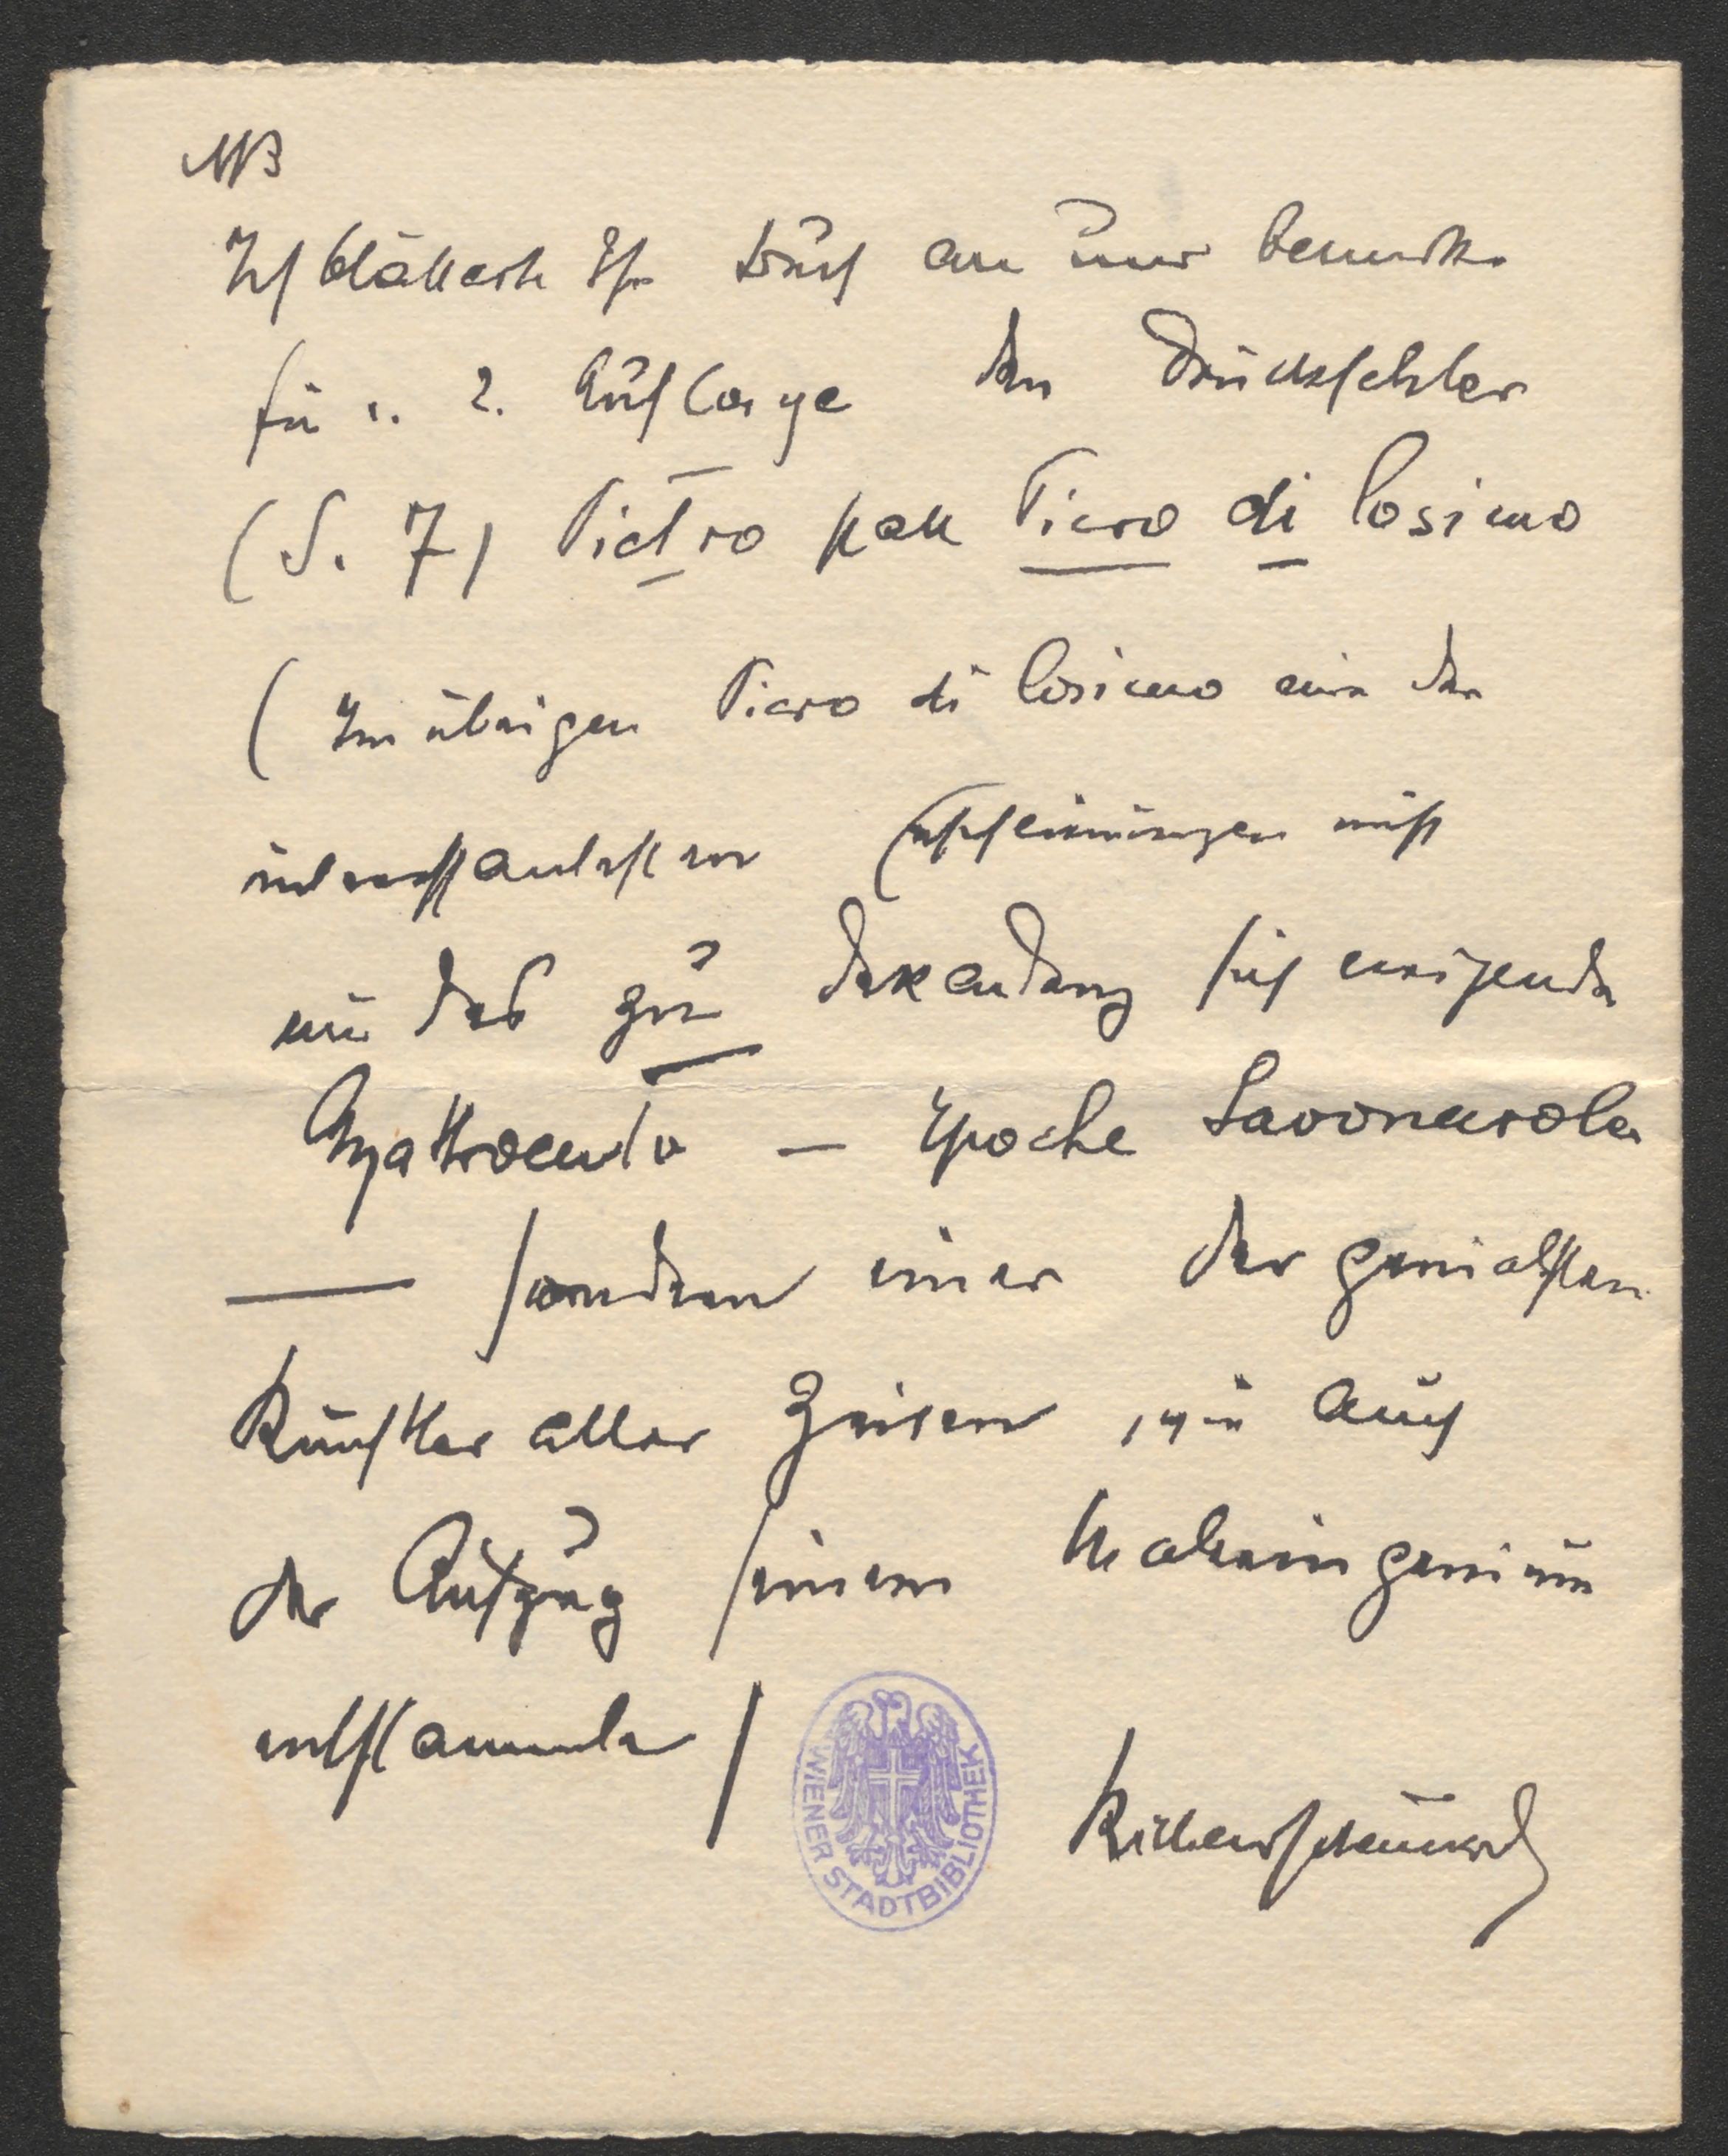 NB
Ich blätterte Ihr Buch an u nur bemerkte
für 2. Auflage den Druckfehler
(S. 7) Pietro statt Piero di Cosimo
(Im übrigen Piero di Cosimo eine der
interessantesten Erscheinungen nicht
nur des zur Dekadenz sich neigenden
Quattrocento – Epoche Savonarola
— sondern einer der genialsten
Künstler aller Zeiten, wie auch
der Aufzug seinem Maleringenium
entstammte)
WIENER STADTBIBLIOTHEK